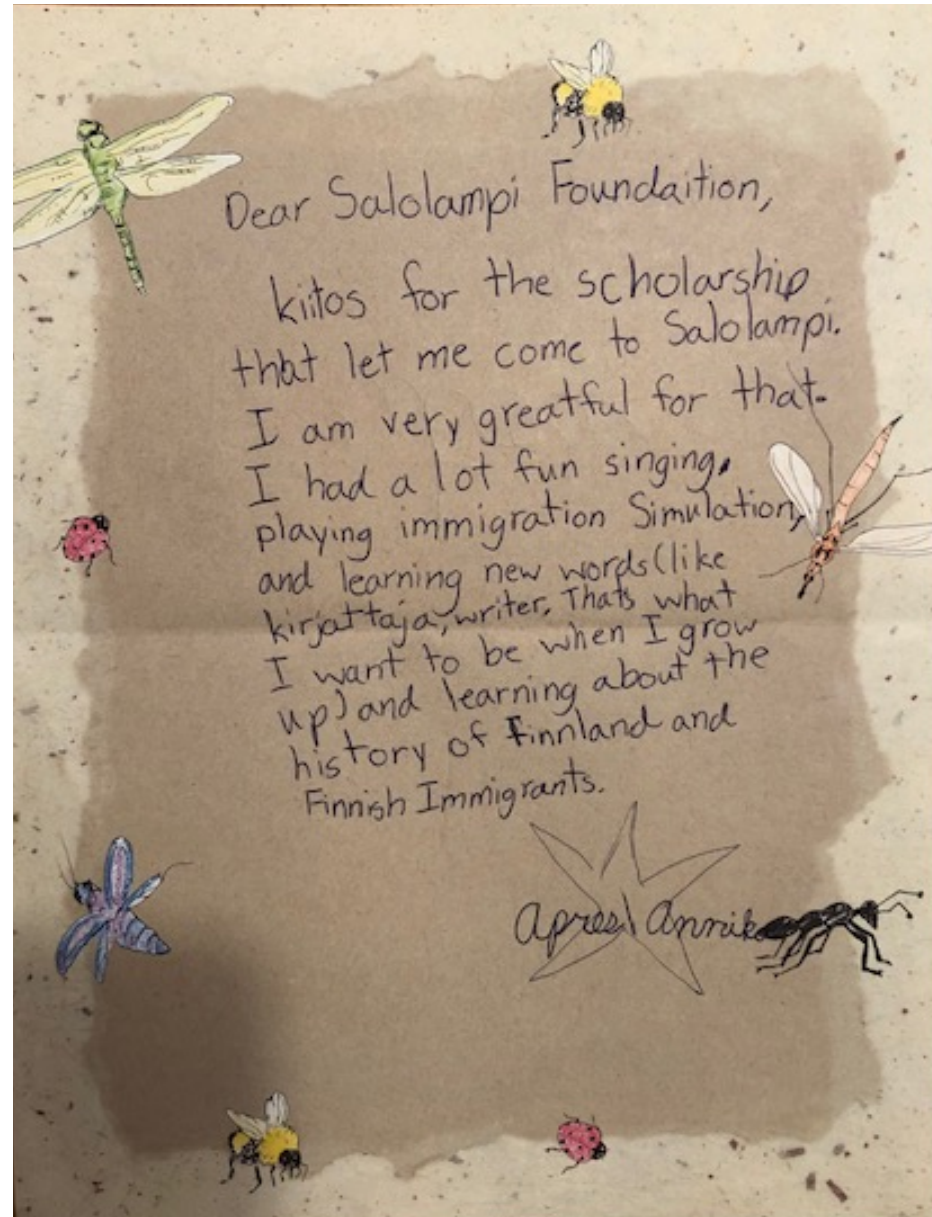 Dear Salolampi Foundaition,
kiitos for the scholarship
that let me come to Salolampi.
I am very greatful for that.
I had a lot fun singing,
playing immigration Simulation,
and learning new words (like
kirjattaja, writer. Thats what
I want to be when I grow
up) and learning about the
history of Finnland and
Finnish Immigrants.
Annika